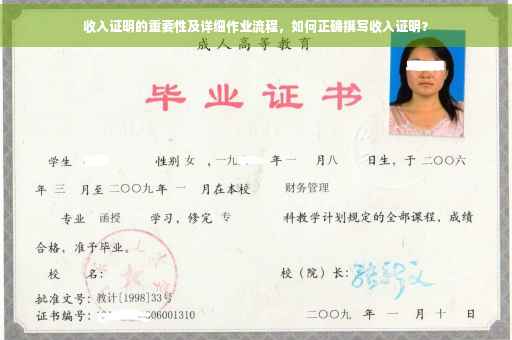 收入证明的重要性及详细作业流程，如何正确撰写收入证明？
成人高等教育
毕业证书
学生 性别 女 ，一九 年 一 月八 日生，于 二〇〇六
年 三 月至 二〇〇九 年 一 月在本校 财务管理
专业 函授 学习，修完 专 科教学计划规定的全部课程，成绩
合格，准予毕业。
校 名： 校（院）长：
批准文号：教计[1998]33号
证书编号： 06001310 二〇〇九 年 一 月 十 日